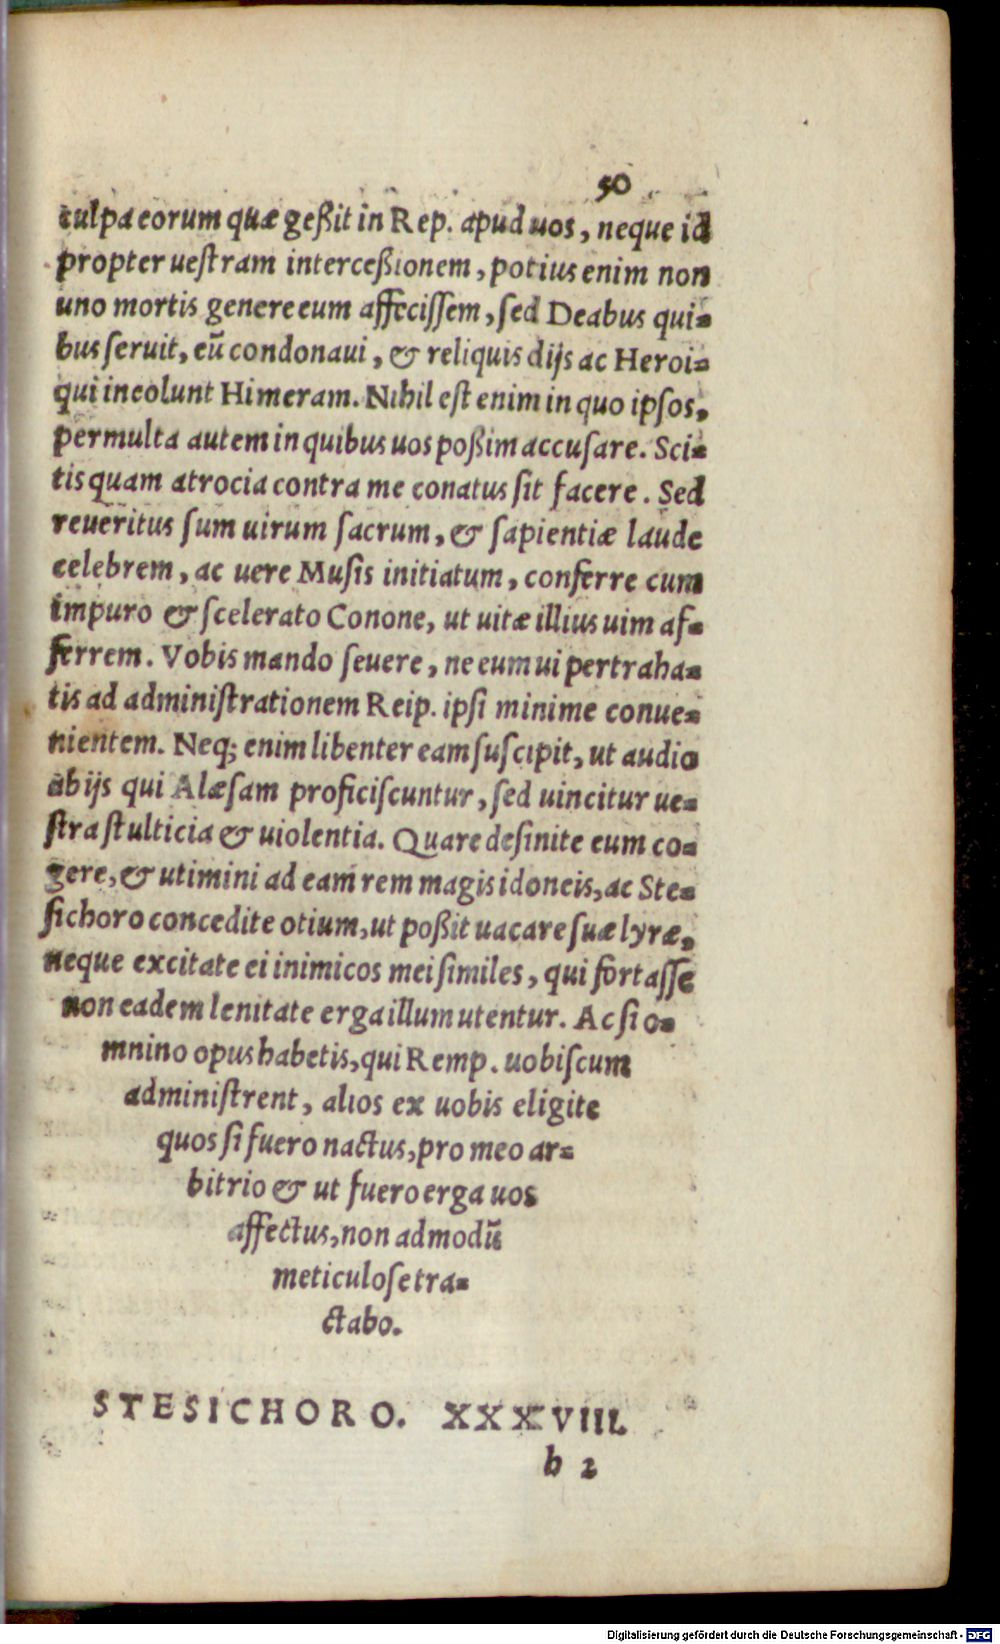 50
culpa eorum quæ geßit in Rep. apud uos, neque id
propter uestram interceßionem, potius enim non
uno mortis genere eum affecissem, sed Deabus qui-
bus seruit, eū condonaui, & reliquis dijs ac Heroi-
qui incolunt Himeram. Nihil est enim in quo ipsos,
permulta autem in quibus uos poßim accusare. Sci-
tis quam atrocia contra me conatus sit facere. Sed
reueritus sum uirum sacrum, & sapientiæ laude
celebrem, ac uere Musis initiatum, conferre cum
impuro & scelerato Conone, ut uitæ illius uim af-
ferrem. Vobis mando seuere, ne eum ui pertraha-
tis ad administrationem Reip. ipsi minime conue-
nientem. Neq; enim libenter eam suscipit, ut audio
ab ijs qui Alæsam proficiscuntur, sed uincitur ue-
stra stulticia & uiolentia. Quare desinite eum co-
gere, & utimini ad eam rem magis idoneis, ac Ste-
sichoro concedite otium, ut poßit uacare suæ lyræ,
neque excitate ei inimicos mei similes, qui fortasse
non eadem lenitate erga illum utentur. Ac si o-
mnino opus habetis, qui Remp. uobiscum
administrent, alios ex uobis eligite
quos si fuero nactus, pro meo ar-
bitrio & ut fuero erga uos
affectus, non admodū
meticulose tra-
ctabo.
STESICHORO. XXXVIII.
b 2
Digitalisierung gefördert durch die Deutsche Forschungsgemeinschaft - DFG